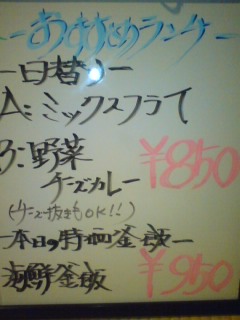 おすすめランチ
ー日替りー
A:ミックスフライ
B:野菜
チーズカレー
¥850
(チーズ抜きもOK!!)
ー本日の特晒釜飯ー
海鮮釜飯
¥950